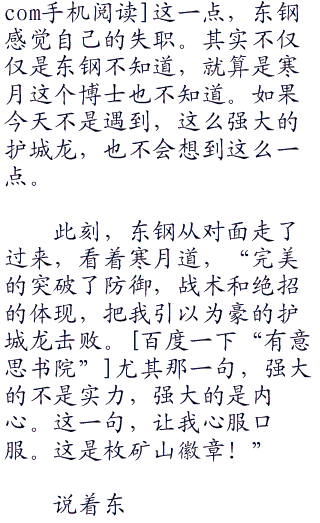 com手机阅读]这一点，东钢
感觉自己的失职。其实不仅
仅是东钢不知道，就算是寒
月这个博士也不知道。如果
今天不是遇到，这么强大的
护城龙，也不会想到这么一
点。
此刻，东钢从对面走了
过来，看着寒月道，“完美
的突破了防御，战术和绝招
的体现，把我引以为豪的护
城龙击败。[百度一下“有意
思书院”]尤其那一句，强大
的不是实力，强大的是内
心。这一句，让我心服口
服。这是枚矿山徽章！”
说着东